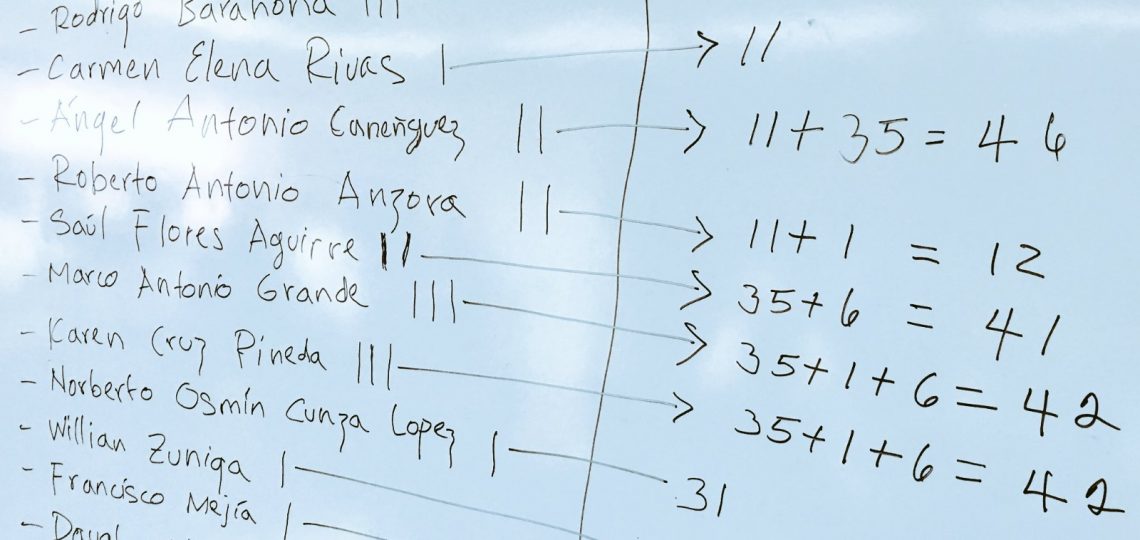 - Rodrigo Barahona III
- Carmen Elena Rivas | → 11
- Ángel Antonio Caneñguez || → 11 + 35 = 46
- Roberto Antonio Anzora || → 11 + 1 = 12
- Saúl Flores Aguirre || → 35 + 6 = 41
- Marco Antonio Grande ||| → 35 + 1 + 6 = 42
- Karen Cruz Pineda ||| → 35 + 1 + 6 = 42
- Norberto Osmín Cunza Lopez | 31
- Willian Zuniga |
- Francisco Mejía |